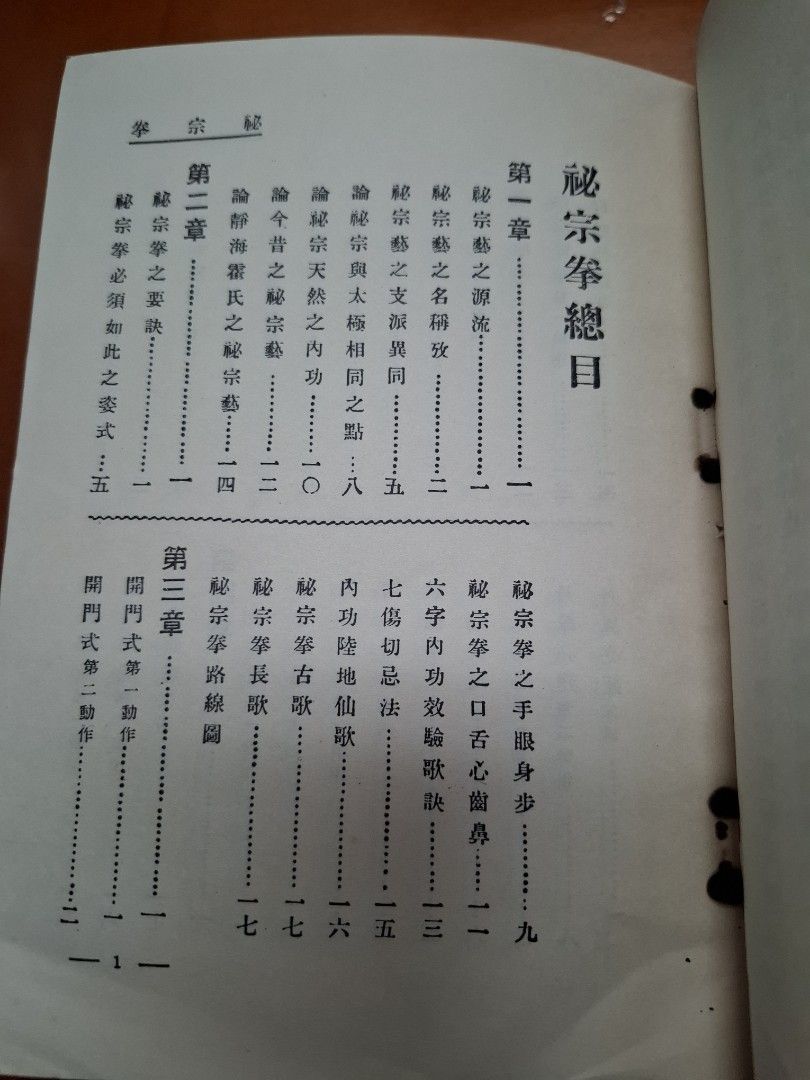 祕宗拳
祕宗拳總目
第一章……一
祕宗藝之源流……一
祕宗藝之名稱攷……二
祕宗藝之支派異同……五
論祕宗與太極相同之點…八
論祕宗天然之內功……一〇
論今昔之祕宗藝……一二
論靜海霍氏之祕宗藝……一四
第二章……一
祕宗拳之要訣……一
祕宗拳必須如此之姿式…五
祕宗拳之手眼身步……九
祕宗拳之口舌心齒鼻……一一
六字內功效驗歌訣……一三
七傷切忌法……一五
內功陸地仙歌……一六
祕宗拳古歌……一七
祕宗拳長歌……一七
祕宗拳路線圖
第三章……一
開門式第一動作……一
開門式第二動作……二
— 1 —